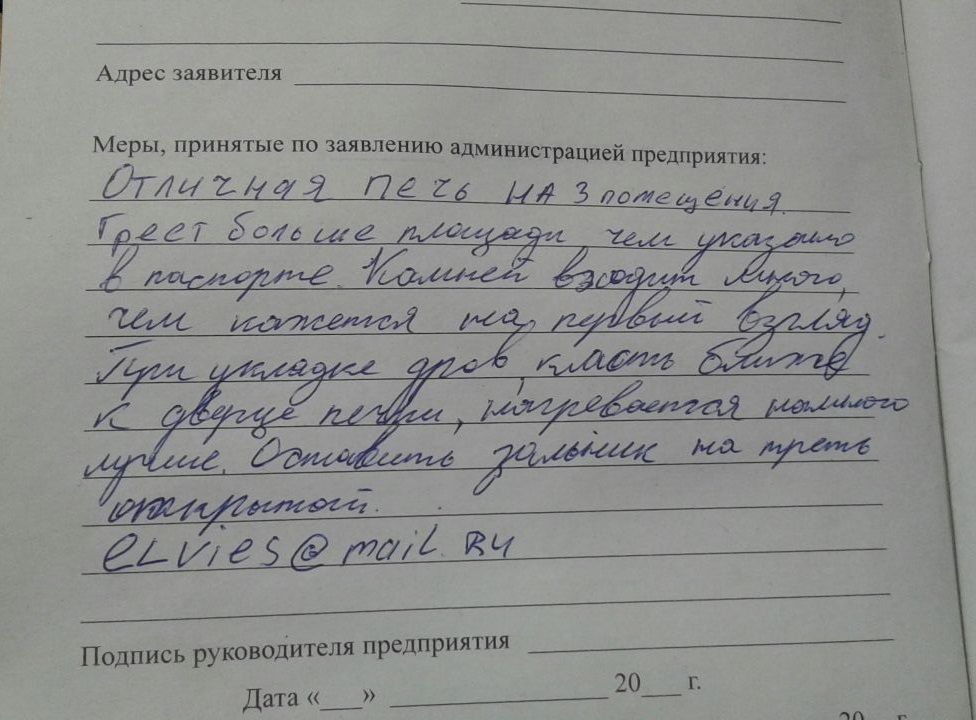 Адрес заявителя
Меры, принятые по заявлению администрацией предприятия:
Отличная печь на 3 помещения.
Греет больше площади чем указано
в паспорте. Камней входит много,
чем кажется на первый взгляд.
При укладке дров, класть ближе
к дверце печки, нагревается намного
лучше. Оставить зальник на треть
открытой.
elvies@mail.ru
Подпись руководителя предприятия
Дата «___» 20___ г.
20 г.